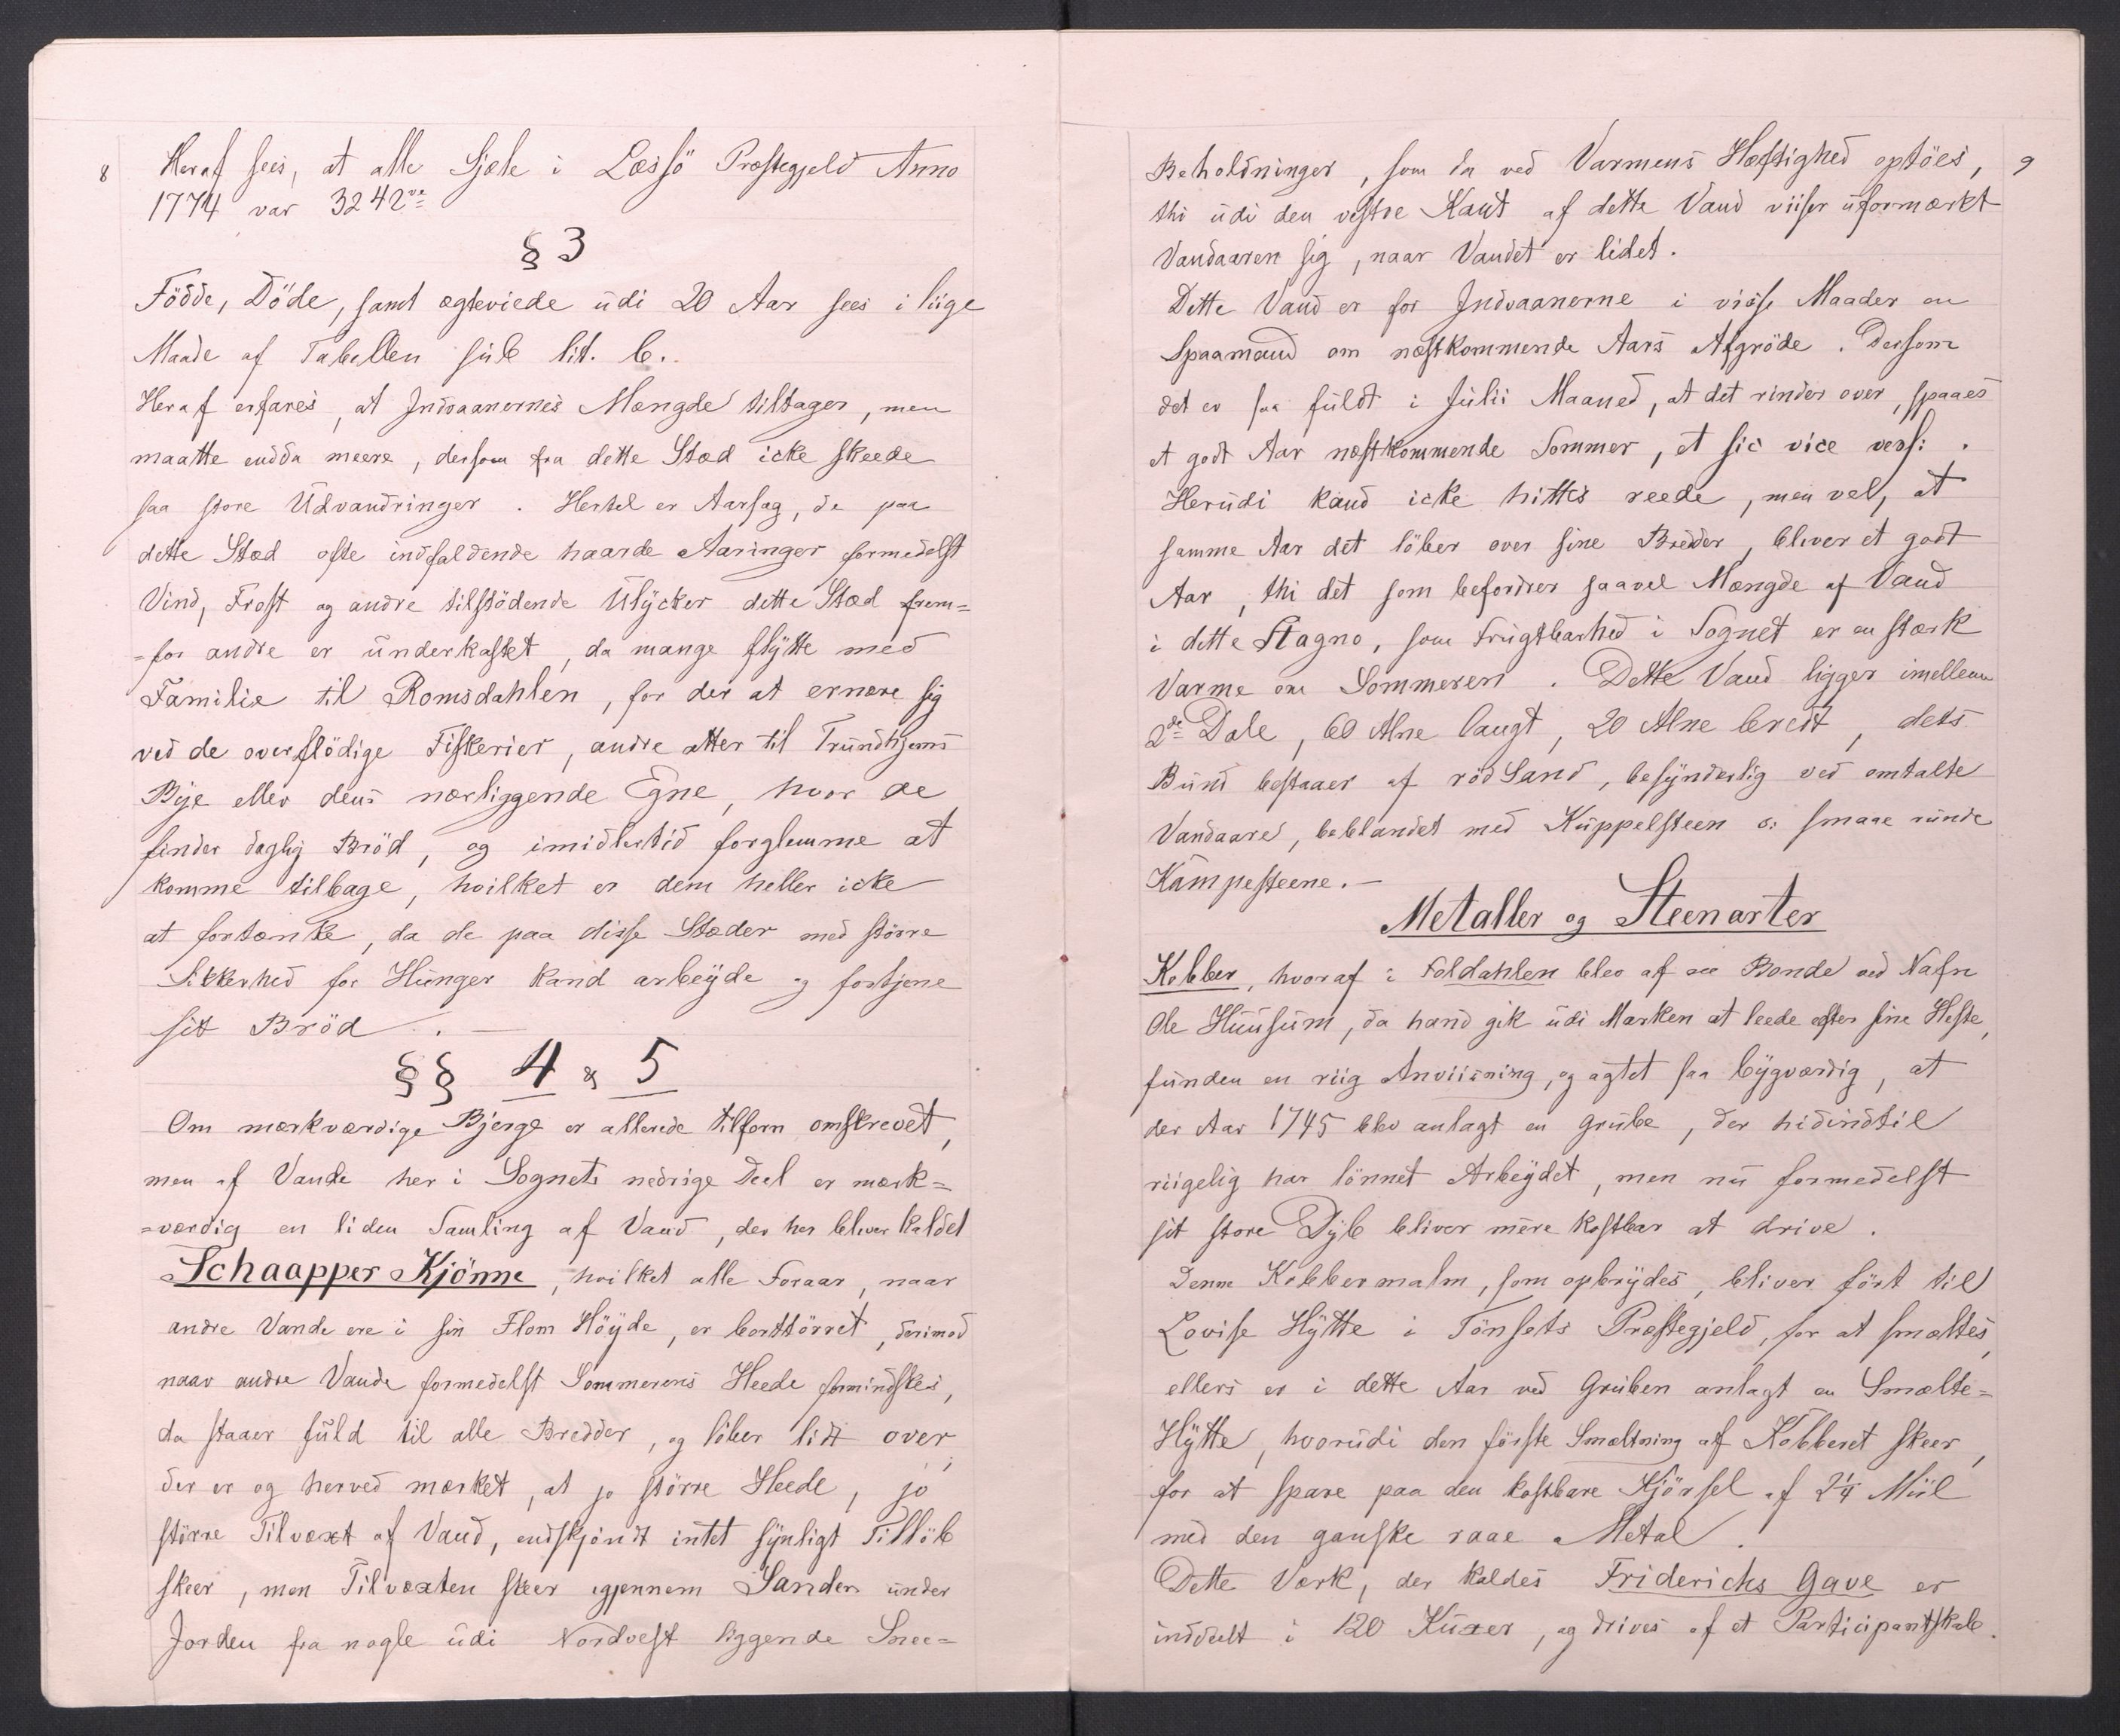 8
Heraf sees, at alle Sjæle i Læssö Præstegjeld Anno
1774 var 3242ve
§ 3
Födde, Döde, samt ægteviede udi 20 Aar sees i liige
Maade af Tabellen sub lit. b.
Heraf erfares, at Indvaanernes Mængde tiltager, men
maatte endda meere, dersom fra dette Stæd icke skeede
saa store Udvandringer. Hertel er Aarsag, de paa
dette Stæd ofte indfaldende haarde Aaringer formedelst
Vind, Frost og andre tilstödende Ulycker dette Stæd frem=
=for andre er underkastet, da mange flytte med
Familie til Romsdahlen, for der at ernære sig
ved de overflödige Fiskerier, andre atter til Trundhjems
Bye eller dens nærliggende Egne, hvor de
finder daglig Bröd, og imidlertid forglemme at
komme tilbage, hvilket er dem heller icke
at fortænke, da de paa disse Stæder med större
Sikkerhed for Hunger kand arbeyde og fortjene
sit Bröd. —
§§ 4 & 5
Om mærkværdige Bjerge er allerede tilforn omskrevet,
men af Vande her i Sognets nedrige Deel er mærk=
=værdig en liden Samling af Vand, der her bliver kaldet
Schaapper Kjönne, hvilket alle Foraar, naar
andre Vande ere i sin Flom Höyde, er borttörret, derimod
naar andre Vande formedelst Sommerens Heede formindskes,
da staaer fuld til alle Bredder, og löber lidt over;
der er og herved mærket, at jo större Heede, jo
större Tilvæxt af Vand, endskjöndt intet synligt Tillöb
skeer, men Tilvæxten skeer igjennem Sanden under
Jorden fra nogle udi Nordvest liggende Snee=
9
Beholdninger, som da ved Varmens Hæftighed optöes,
thi udi den vestre Kant af dette Vand viiser uformærkt
Vandaaren sig, naar Vandet er lidet.
Dette Vand er for Indvaanerne i visse Maader en
Spaamand om næstkommende Aars Afgröde. Dersom
det er saa fuldt i Julii Maaned, at det rinder over, spaaes
et godt Aar næstkommende Sommer, et sic vice vers:.
Herudi kand icke hittes reede, men vel, at
samme Aar det löber over sine Bredder, bliver et godt
Aar, thi det som befordrer saavel Mængde af Vand
i dette Stagno, som Frugtbarhed i Sognet er en stærk
Varme om Sommeren. Dette Vand ligger imellem
2de Dale, 60 Alne langt, 20 Alne bredt, dets
Bund bestaaer af röd Sand, besynderlig ved omtalte
Vandaare, beblandet med Kuppelsteen o: smaae runde
Kampesteene. —
Metaller og Steenarter
Kobber, hvoraf i Foldahlen blev af en Bonde ved Nafn
Ole Huusum, da hand gik udi Marken at leede efter sine Heste,
funden en riig Anviisning, og agtet saa bygværdig, at
der Aar 1745 blev anlagt en Grube, der hidindtil
riigelig har lönnet Arbeydet, men nu formedelst
sit store Dyb bliver mere kostbar at drive.
Denne Kobbermalm, som opbrydes, bliver fört til
Lovise Hytte i Tönsets Præstegjeld, for at smæltes,
ellers er i dette Aar ved Gruben anlagt en Smælte=
Hytte, hvorudi den förste Smæltning af Kobberet skeer,
for at spare paa den kostbare Kjörsel af 2 1/4 Miil
med den ganske raae Metal.
Dette Værk, der kaldes Friderichs Gave er
inddeelt i 120 Kuxer, og drives af et Participantskab.